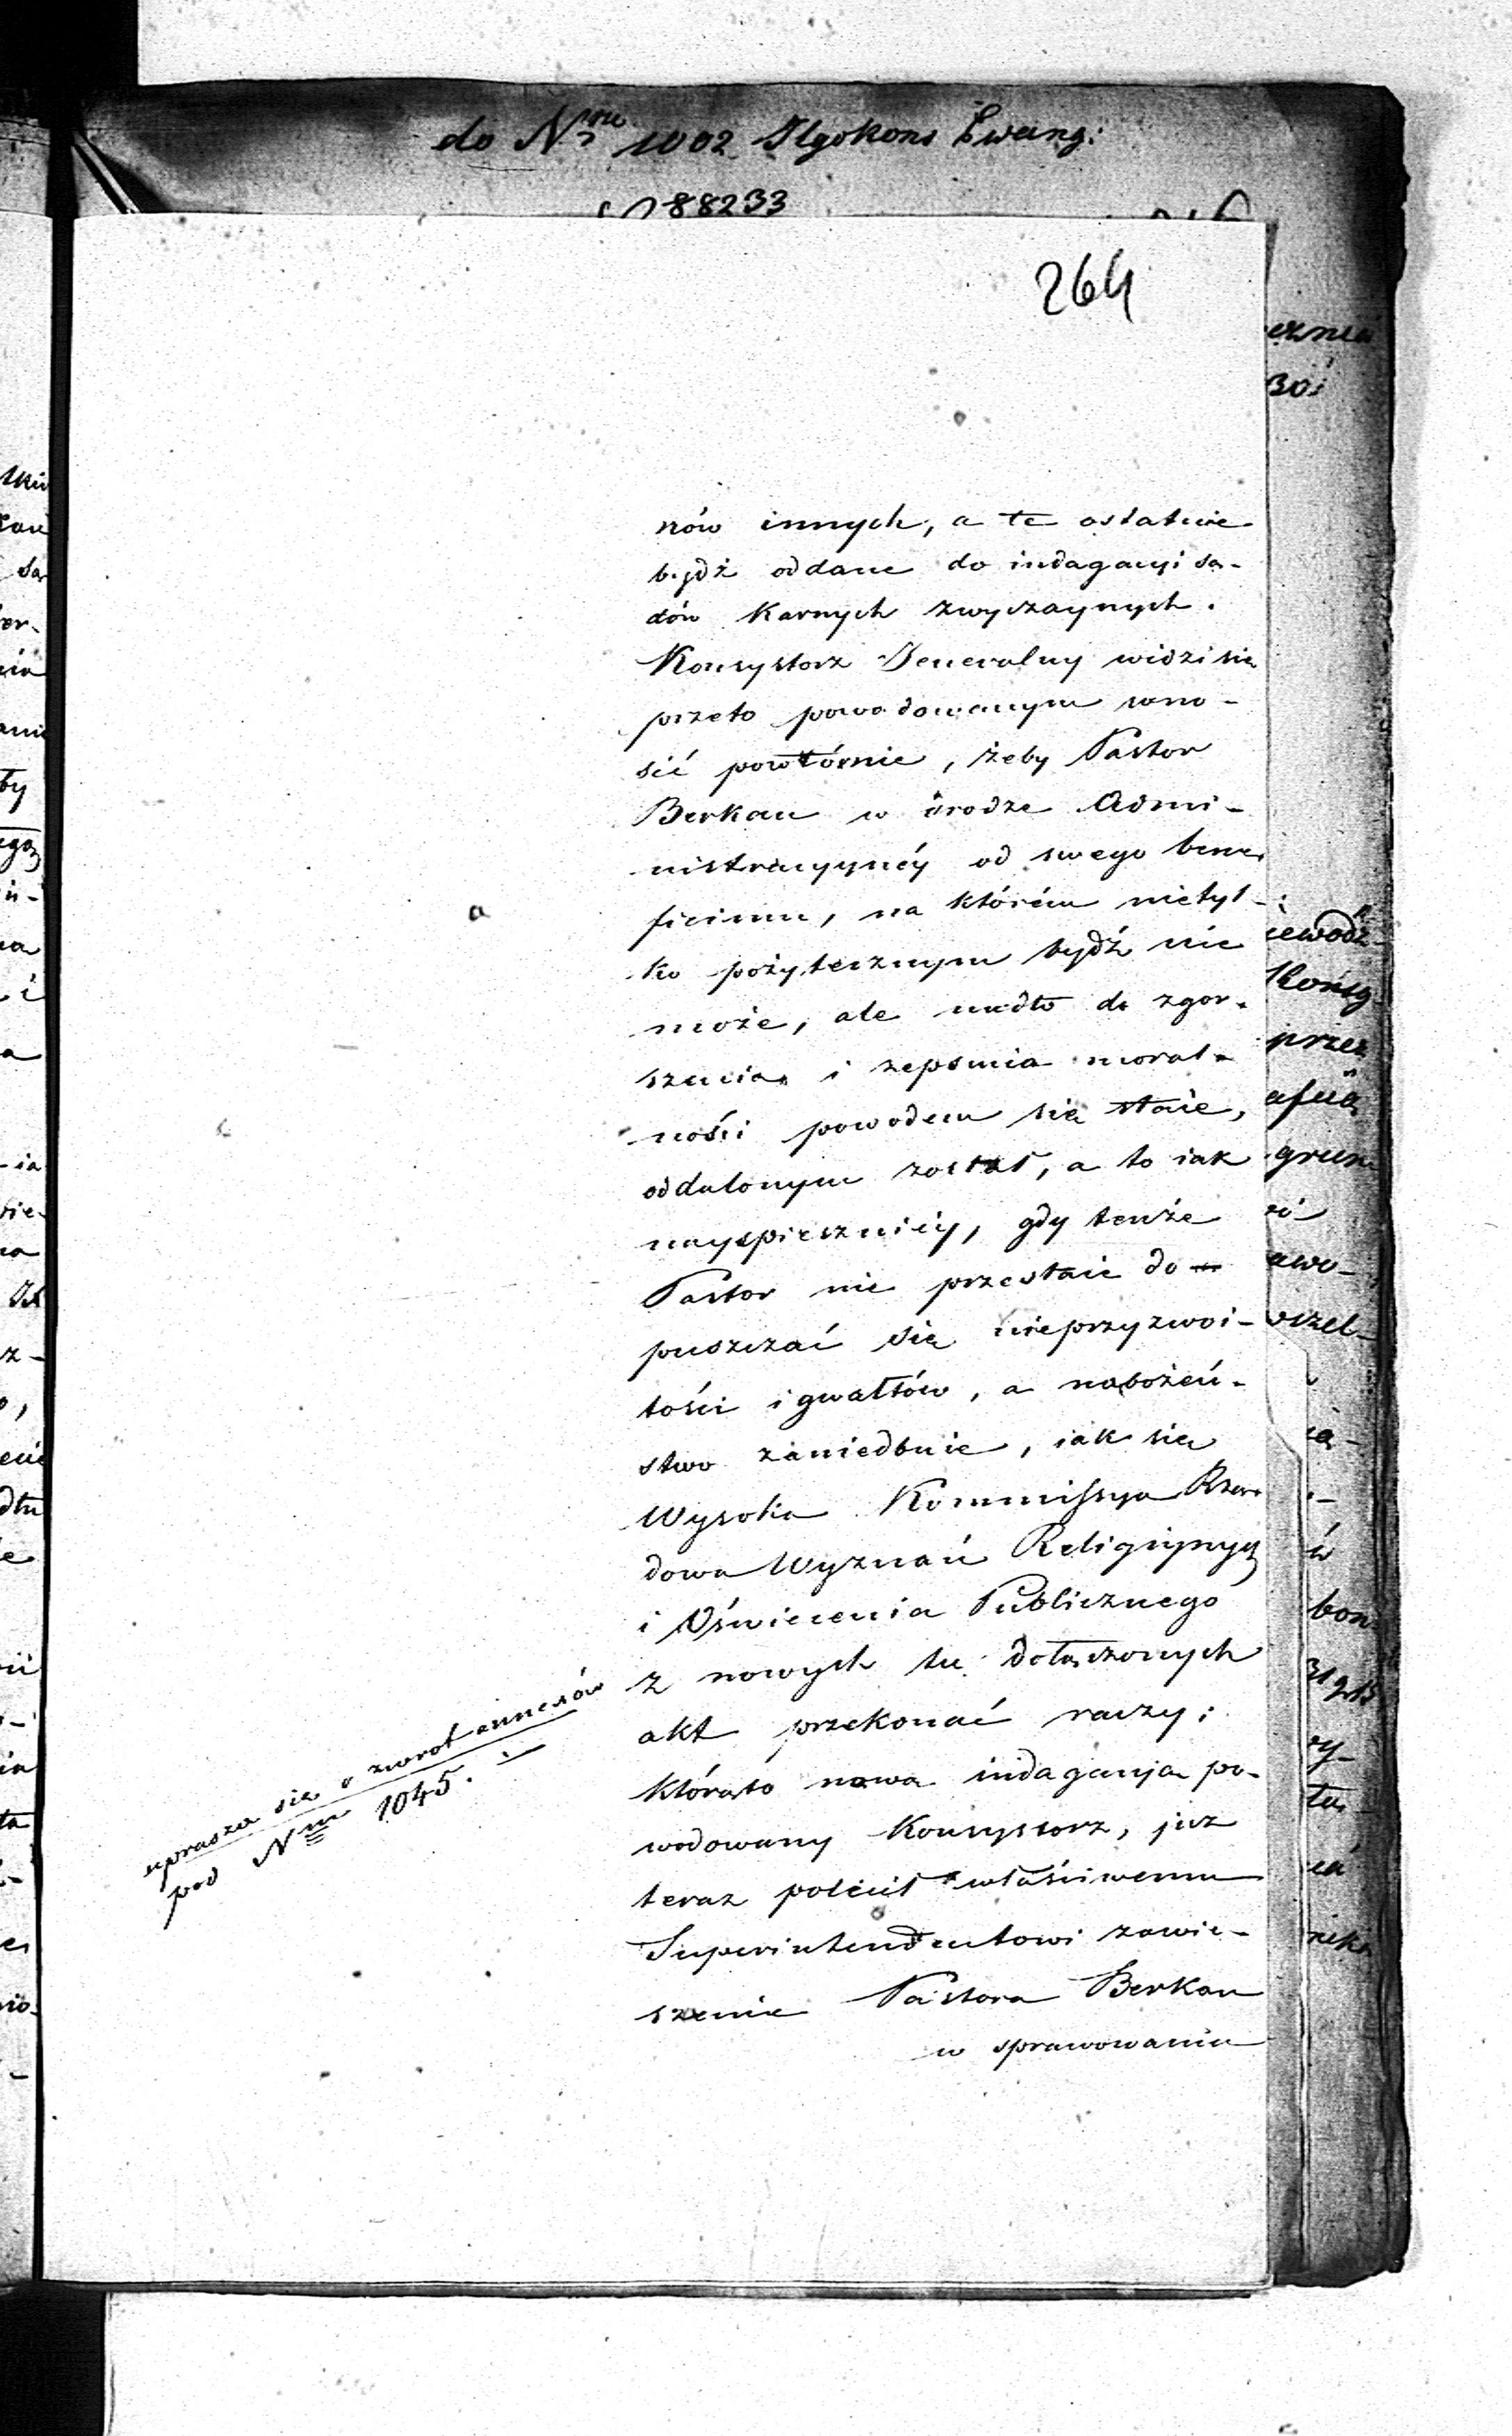 do Nru 1002 Ewang:
88233
264
nów innych, a te ostatnie
bydź oddane do indagacyi są-
dów Karnych zwyczaynych.
Konsystorz Jeneralny widzi się
przeto powodowanym wno-
sić powtórnie, żeby Pastor
Berkau w drodze Admi-
nistracyynéy od swego bene-
ficium, na którém nietyl-
ko pożytecznym bydź nie
może, ale nadto do zgor-
szenia i zepsucia moral-
ności powodem się staie,
oddalonym został, a to iak
nayspieszniéy, gdy tenże
Pastor nie przestaie do-
puszczać się nieprzyzwoi-
tości i gwałtów, a nabożeń-
stwo zaniedbuie, iak się
Wysoka Kommissya Rzą-
dowa Wyznań Religiynych
i Oświecenia Publicznego
z nowych tu dołączonych
akt przekonać raczy;
którąto nową indagacyą po-
wodowany Konsystorz, już
teraz polecił właściwemu
Superintendentowi zawie-
szenie Pastora Berkau
w sprawowaniu
uprasza się o zwrot annexów
pod Nrm 1045.